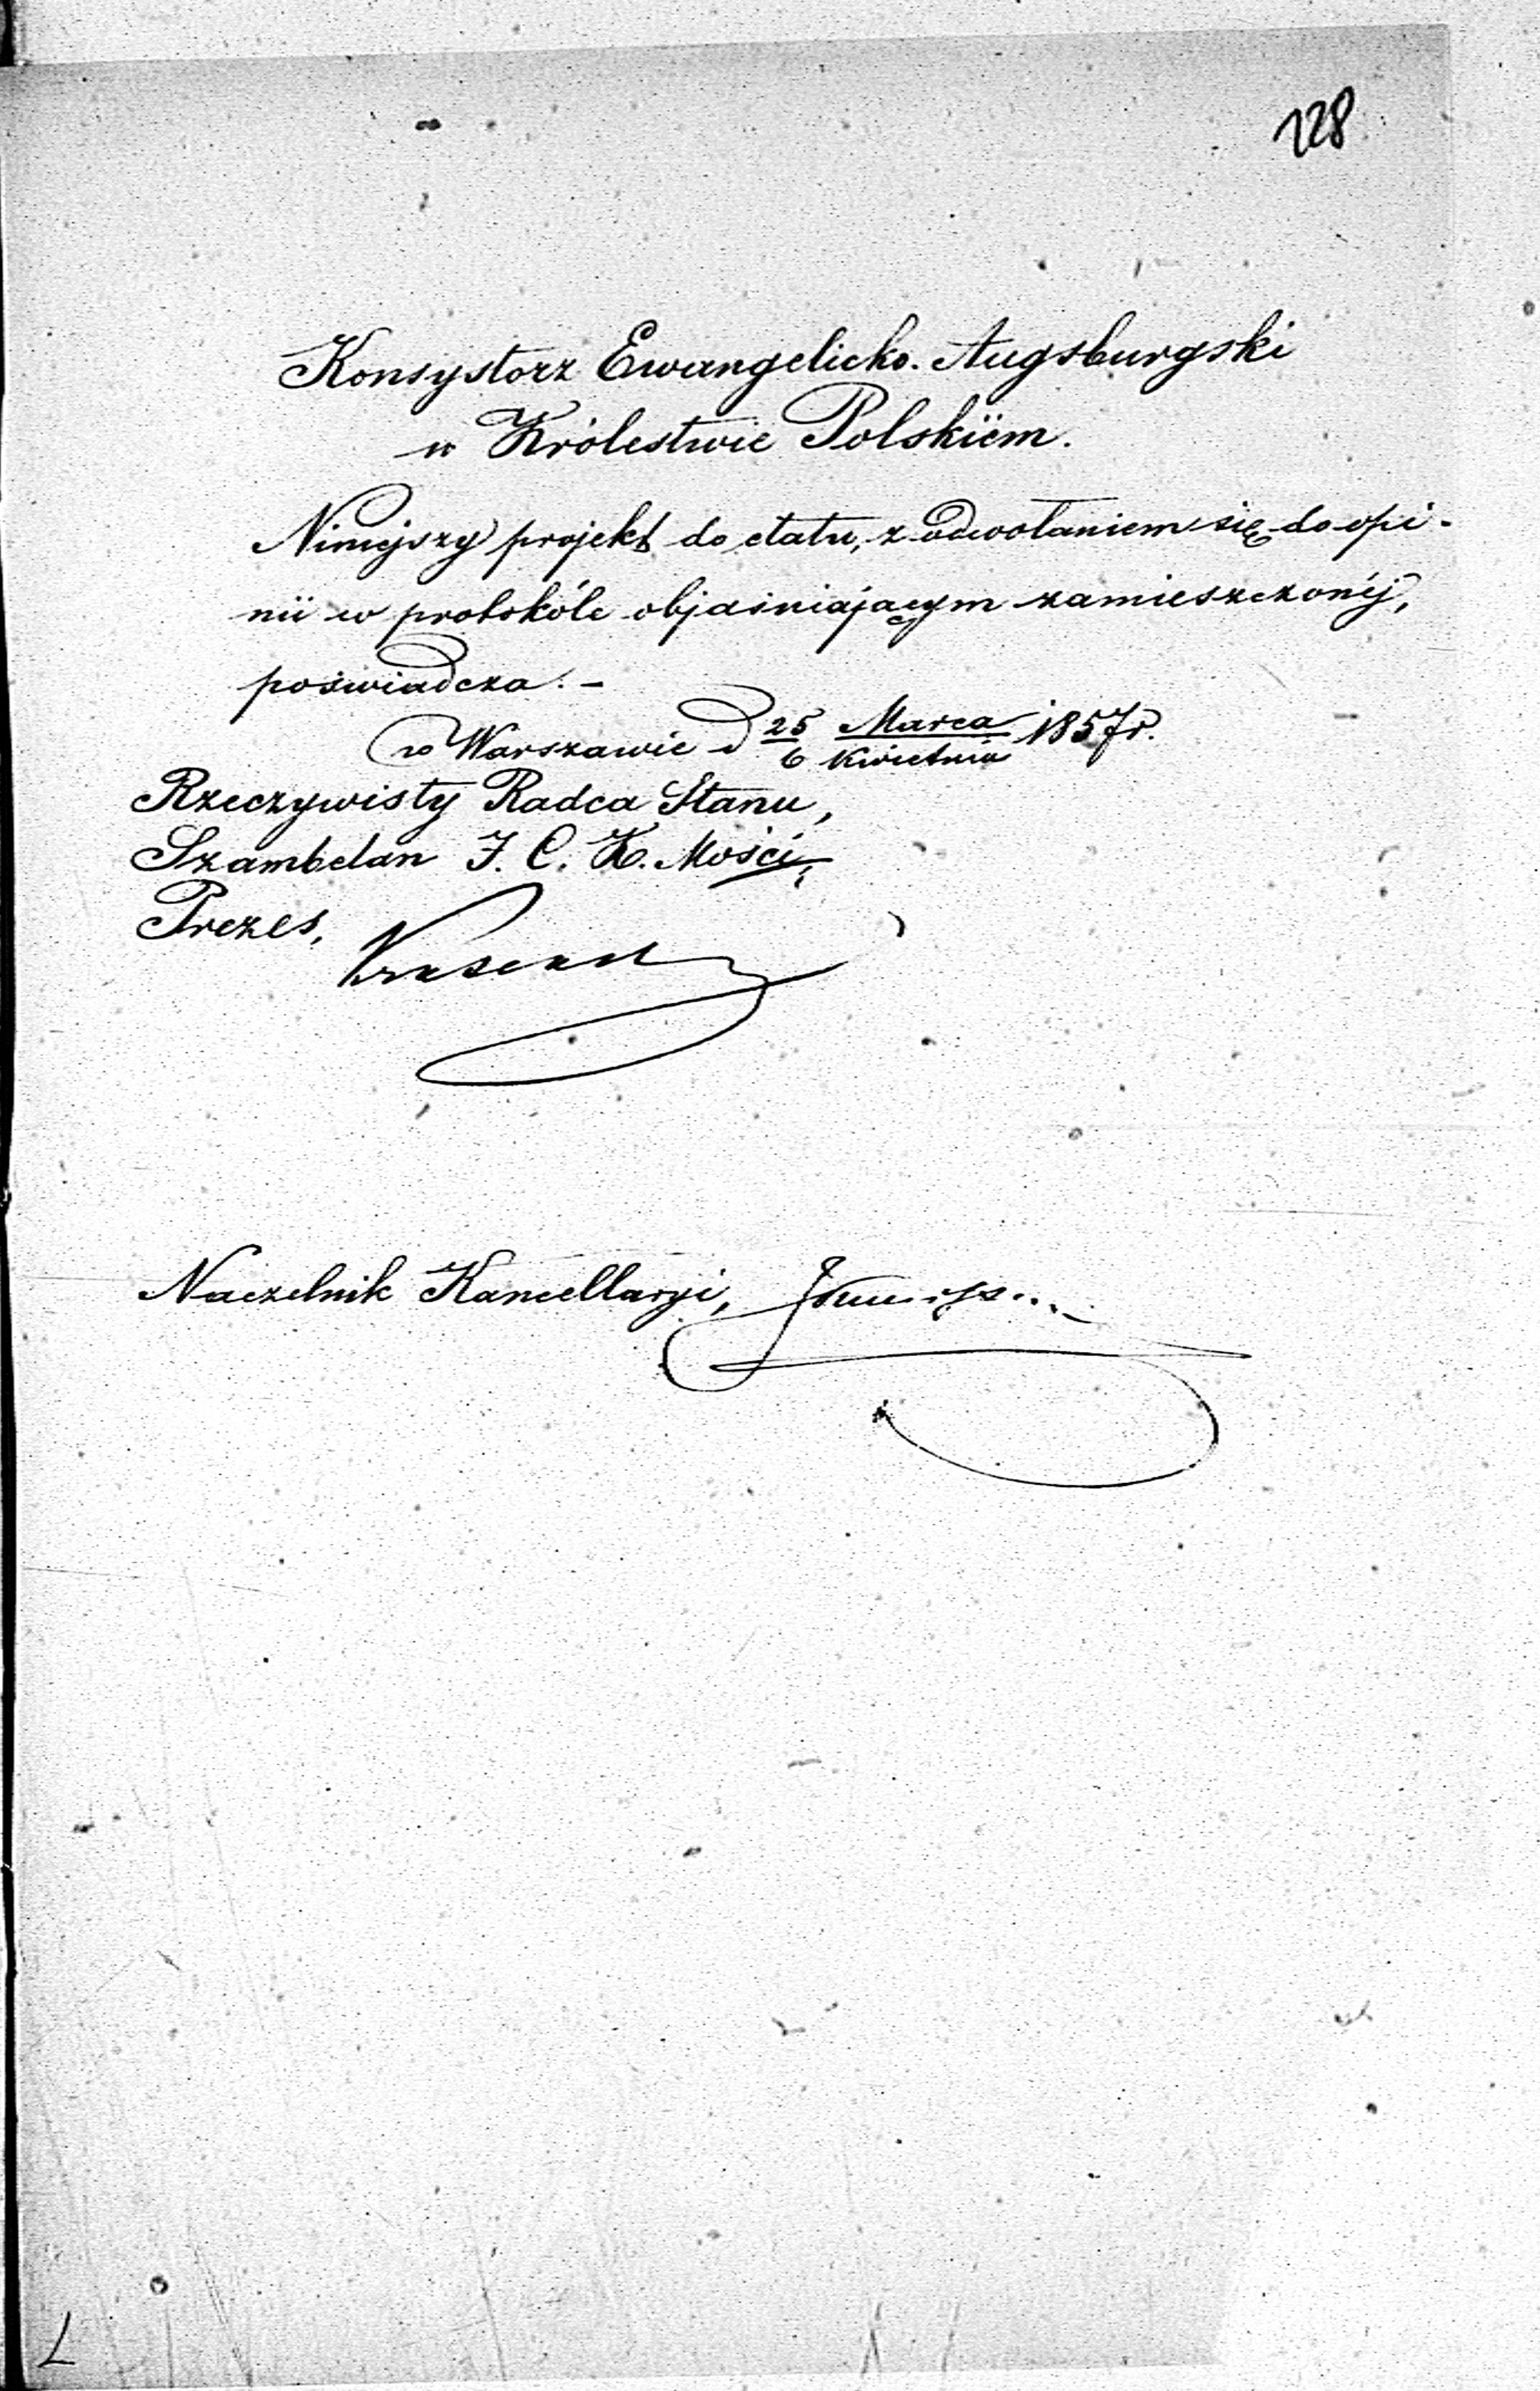 128
Konsystorz Ewangelicko-Augsburgski
w Królestwie Polskiem.
Niniejszy projekt do etatu, z odwołaniem się do opi-
nii w protokóle objaśniającym zamieszczonéj,
poświadcza. -
w Warszawie d 25/6 Marca/Kwietnia 1857 r.
Rzeczywisty Radca Stanu,
Szambelan J. C. K. Mości,
Prezes,
Naczelnik Kancellaryi,